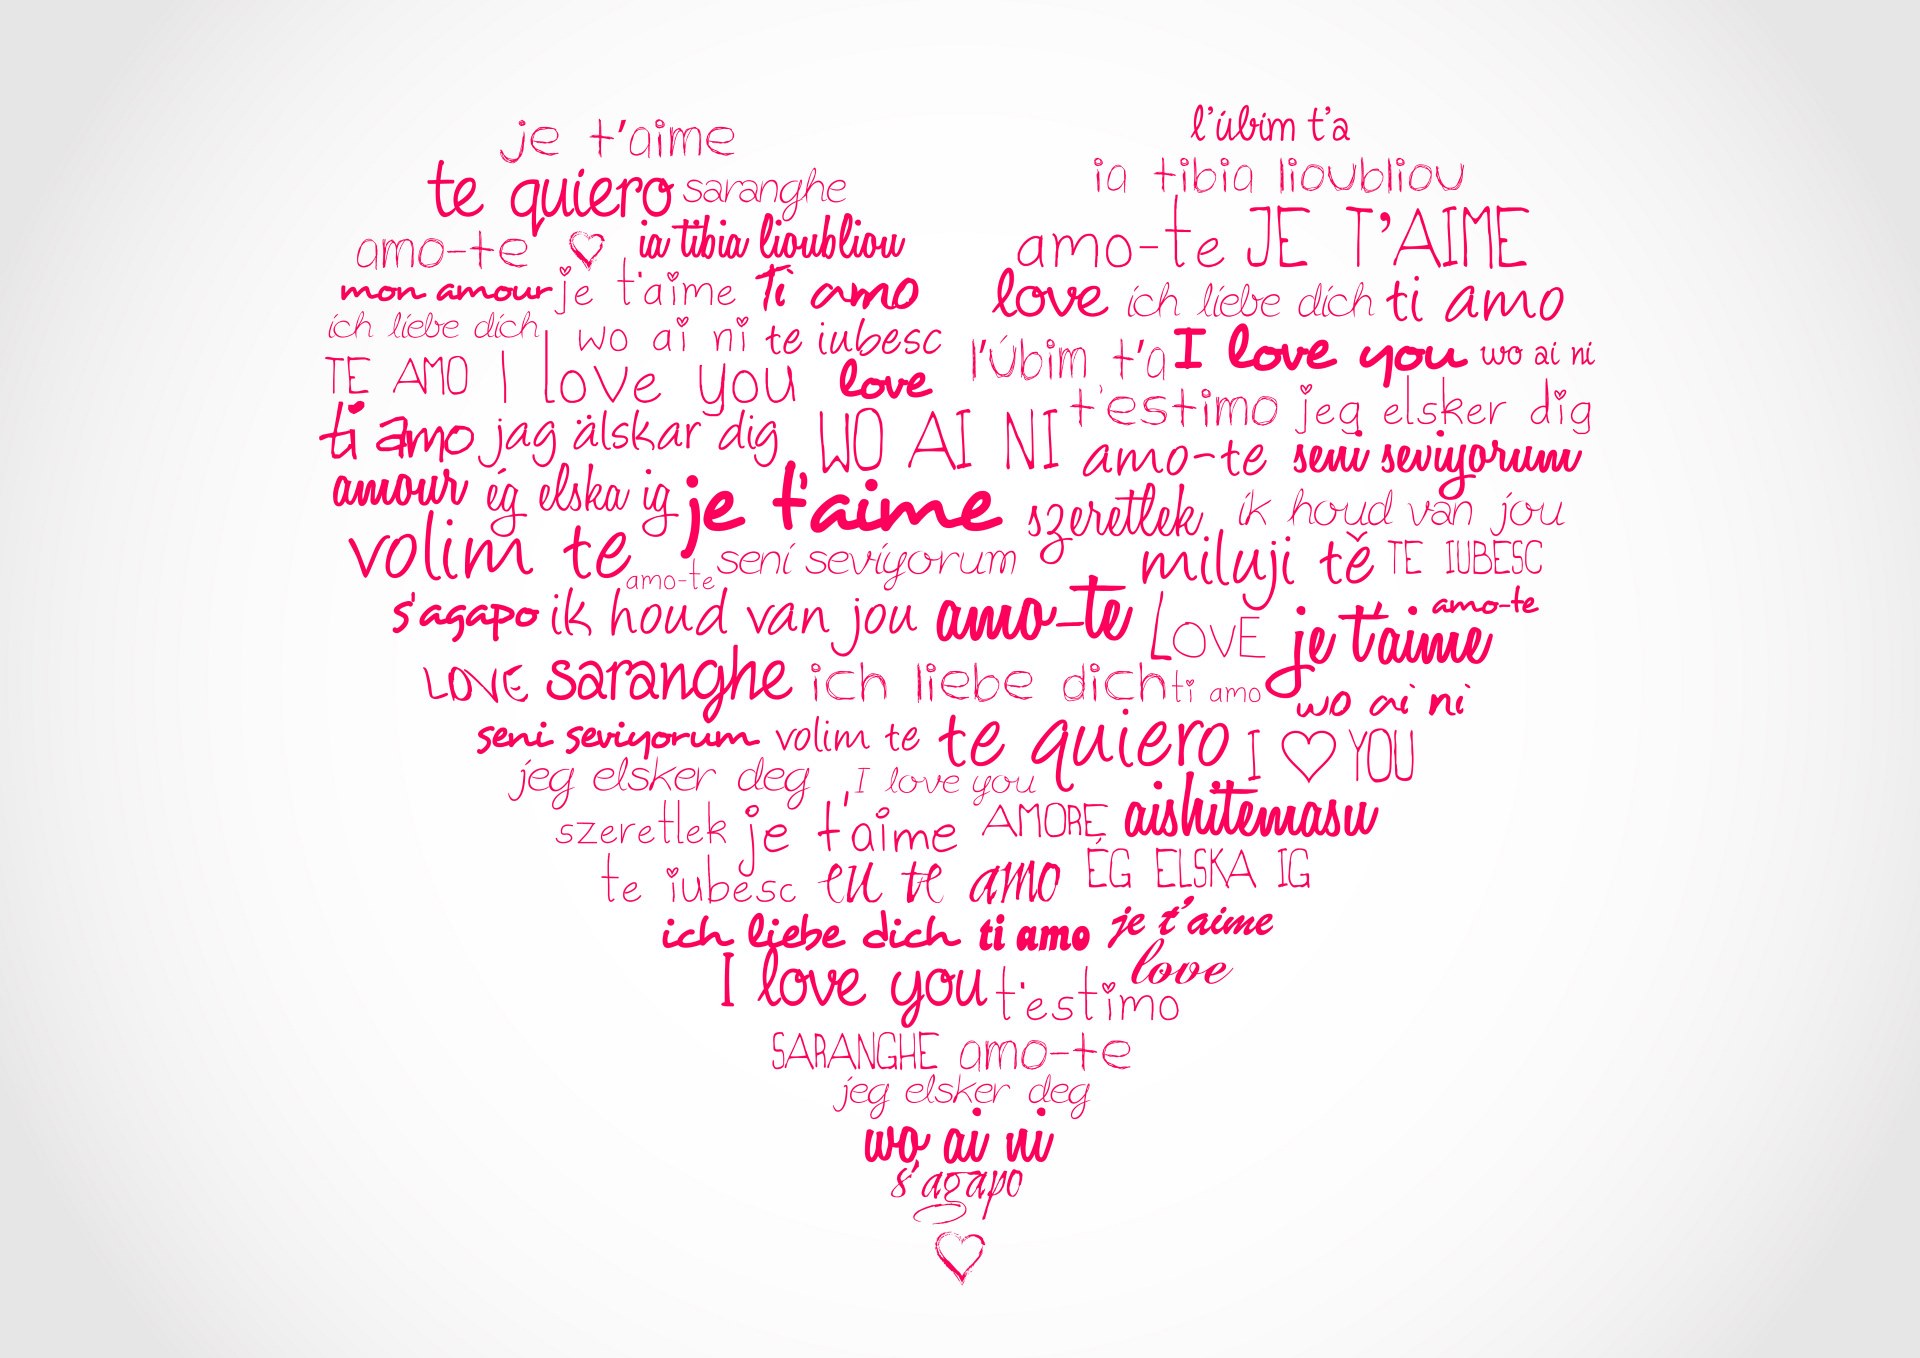 je t'aime
te quiero saranghe
amo-te ia tibia lioubliou
mon amour je t'aime Ti amo
ich liebe dich wo ai ni te iubesc
TE AMO I love you love
ti amo jag älskar dig WO AI NI
l'úbim t'a
ia tibia lioubliou
amo-te JE T'AIME
love ich liebe dich ti amo
l'Úbim t'a I love you wo ai ni
t'estimo jeg elsker dig
amo-te seni seviyorum
amour ég elska ig je t'aime szeretlek ik houd van jou
volim te amo-te seni seviyorum miluji tě TE IUBESC
s'agapo ik houd van jou amo-te LOVE je t'aime amo-te
LOVE saranghe ich liebe dich ti amo wo ai ni
seni seviyorum volim te te quiero I ♡ YOU
jeg elsker deg I love you
szeretlek je t'aime AMORE aishitemasu
te iubesc eu te amo ÉG ELSKA IG
ich liebe dich ti amo je t'aime
I love you t'estimo love
SARANGHE amo-te
jeg elsker deg
wo ai ni
s'agapo